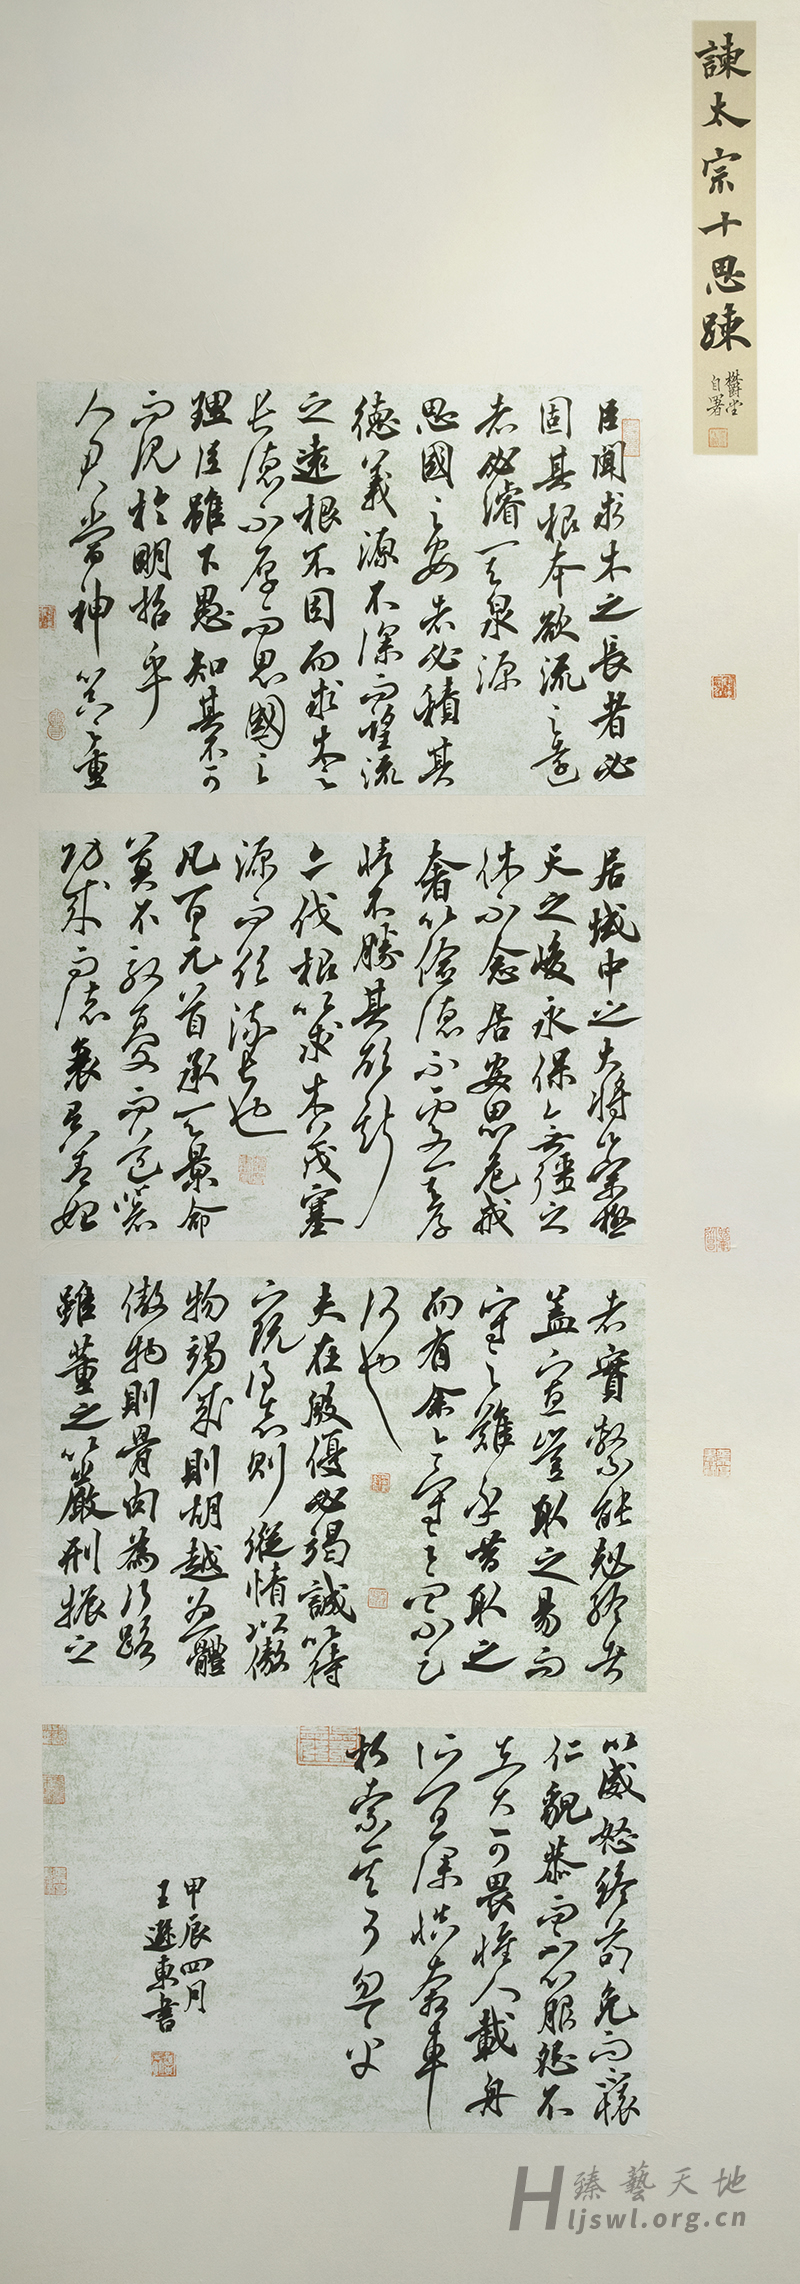 諫太宗十思踈
鬱堂
自署
臣聞求木之長者必
固其根本欲流之遠
者必濬其泉源
思國之安者必積其
德義源不深而望流
之遠根不固而求木之
長德不厚而思國之
理臣雖下愚知其不可
而況於明哲乎
人君當神器之重
居域中之大將崇極
天之峻永保無疆之
休不念居安思危戒
奢以儉德不處其厚
情不勝其欲斯
亦伐根以求木茂塞
源而欲流長也
凡百元首承天景命
莫不殷憂而道著
功成而德衰有善始
者實繁能克終者
蓋寡豈取之易而
守之難乎昔取之
而有餘今守之而不足
何也
夫在殷憂必竭誠以待
下既得志則縱情以傲
物竭誠則胡越為一體
傲物則骨肉為行路
雖董之以嚴刑振之
以威怒終苟免而不懷
仁貌恭而不心服怨不
在大可畏惟人載舟
所宜深慎奔車
朽索其可忽乎
甲辰四月
王遜東書
臻藝天地
Hljswl.org.cn